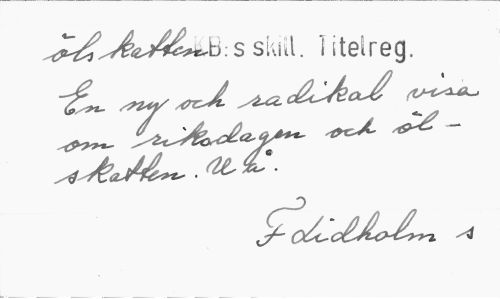 ölskatten KB:s skill. Titelreg.
En ny och radikal visa
om riksdagen och öl-
skatten. U å.
F Lidholm s